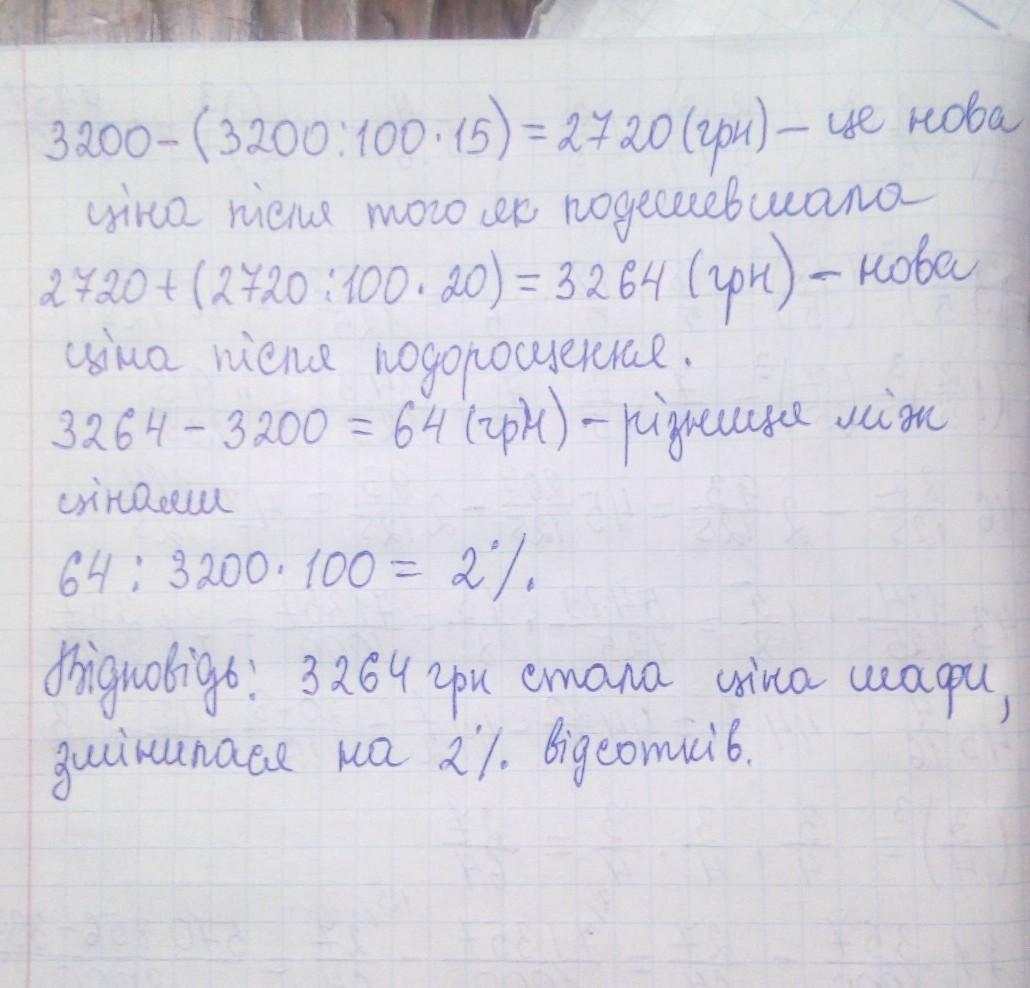 3200-(3200:100·15)=2720(грн)- це нова
ціна після того як подешевшала
2720+(2720:100·20)=3264(грн)- нова
ціна після подорощення.
3264-3200=64(грн)-різниця між
цінами
64:3200·100= 2%.
Відповідь: 3264 грн стала ціна шафи,
змінилася на 2%. відсотків.